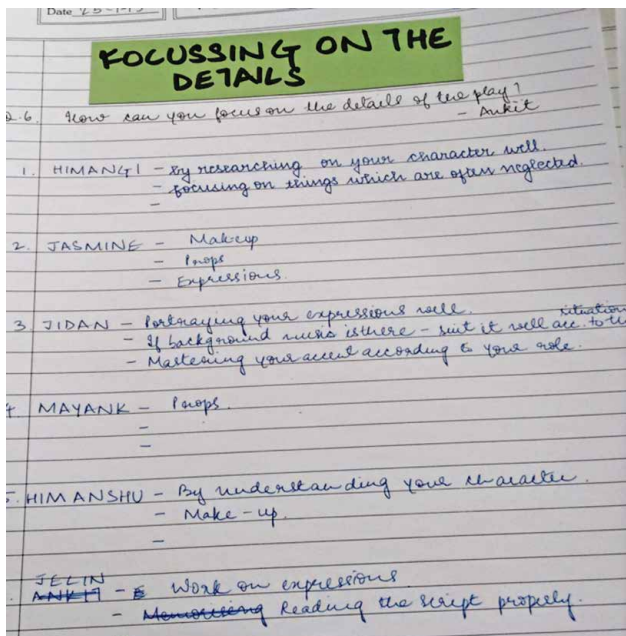 Date 25-1-19
FOCUSSING ON THE
DETAILS
Q.6. How can you focus on the details of the play?
- Ankit
1. HIMANGI - By researching on your character well.
- focusing on things which are often neglected.
-
2. JASMINE - Makeup
- Props
- Expressions.
3. JIDAN - Portraying your expressions well.
situation
- If background music is there - suit it well acc. to the
- Mastering your accent according to your role.
4. MAYANK - Props.
-
-
5. HIMANSHU - By understanding your character.
- Make-up.
-
JELIN
ANKIT - Work on expressions.
- Memorising Reading the script properly.